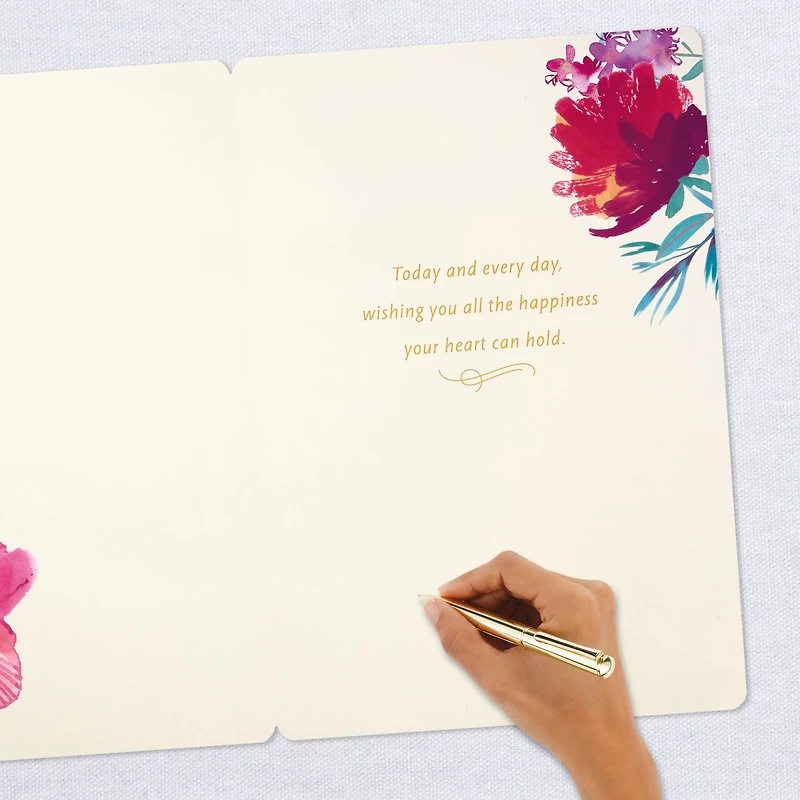 Today and every day,
wishing you all the happiness
your heart can hold.